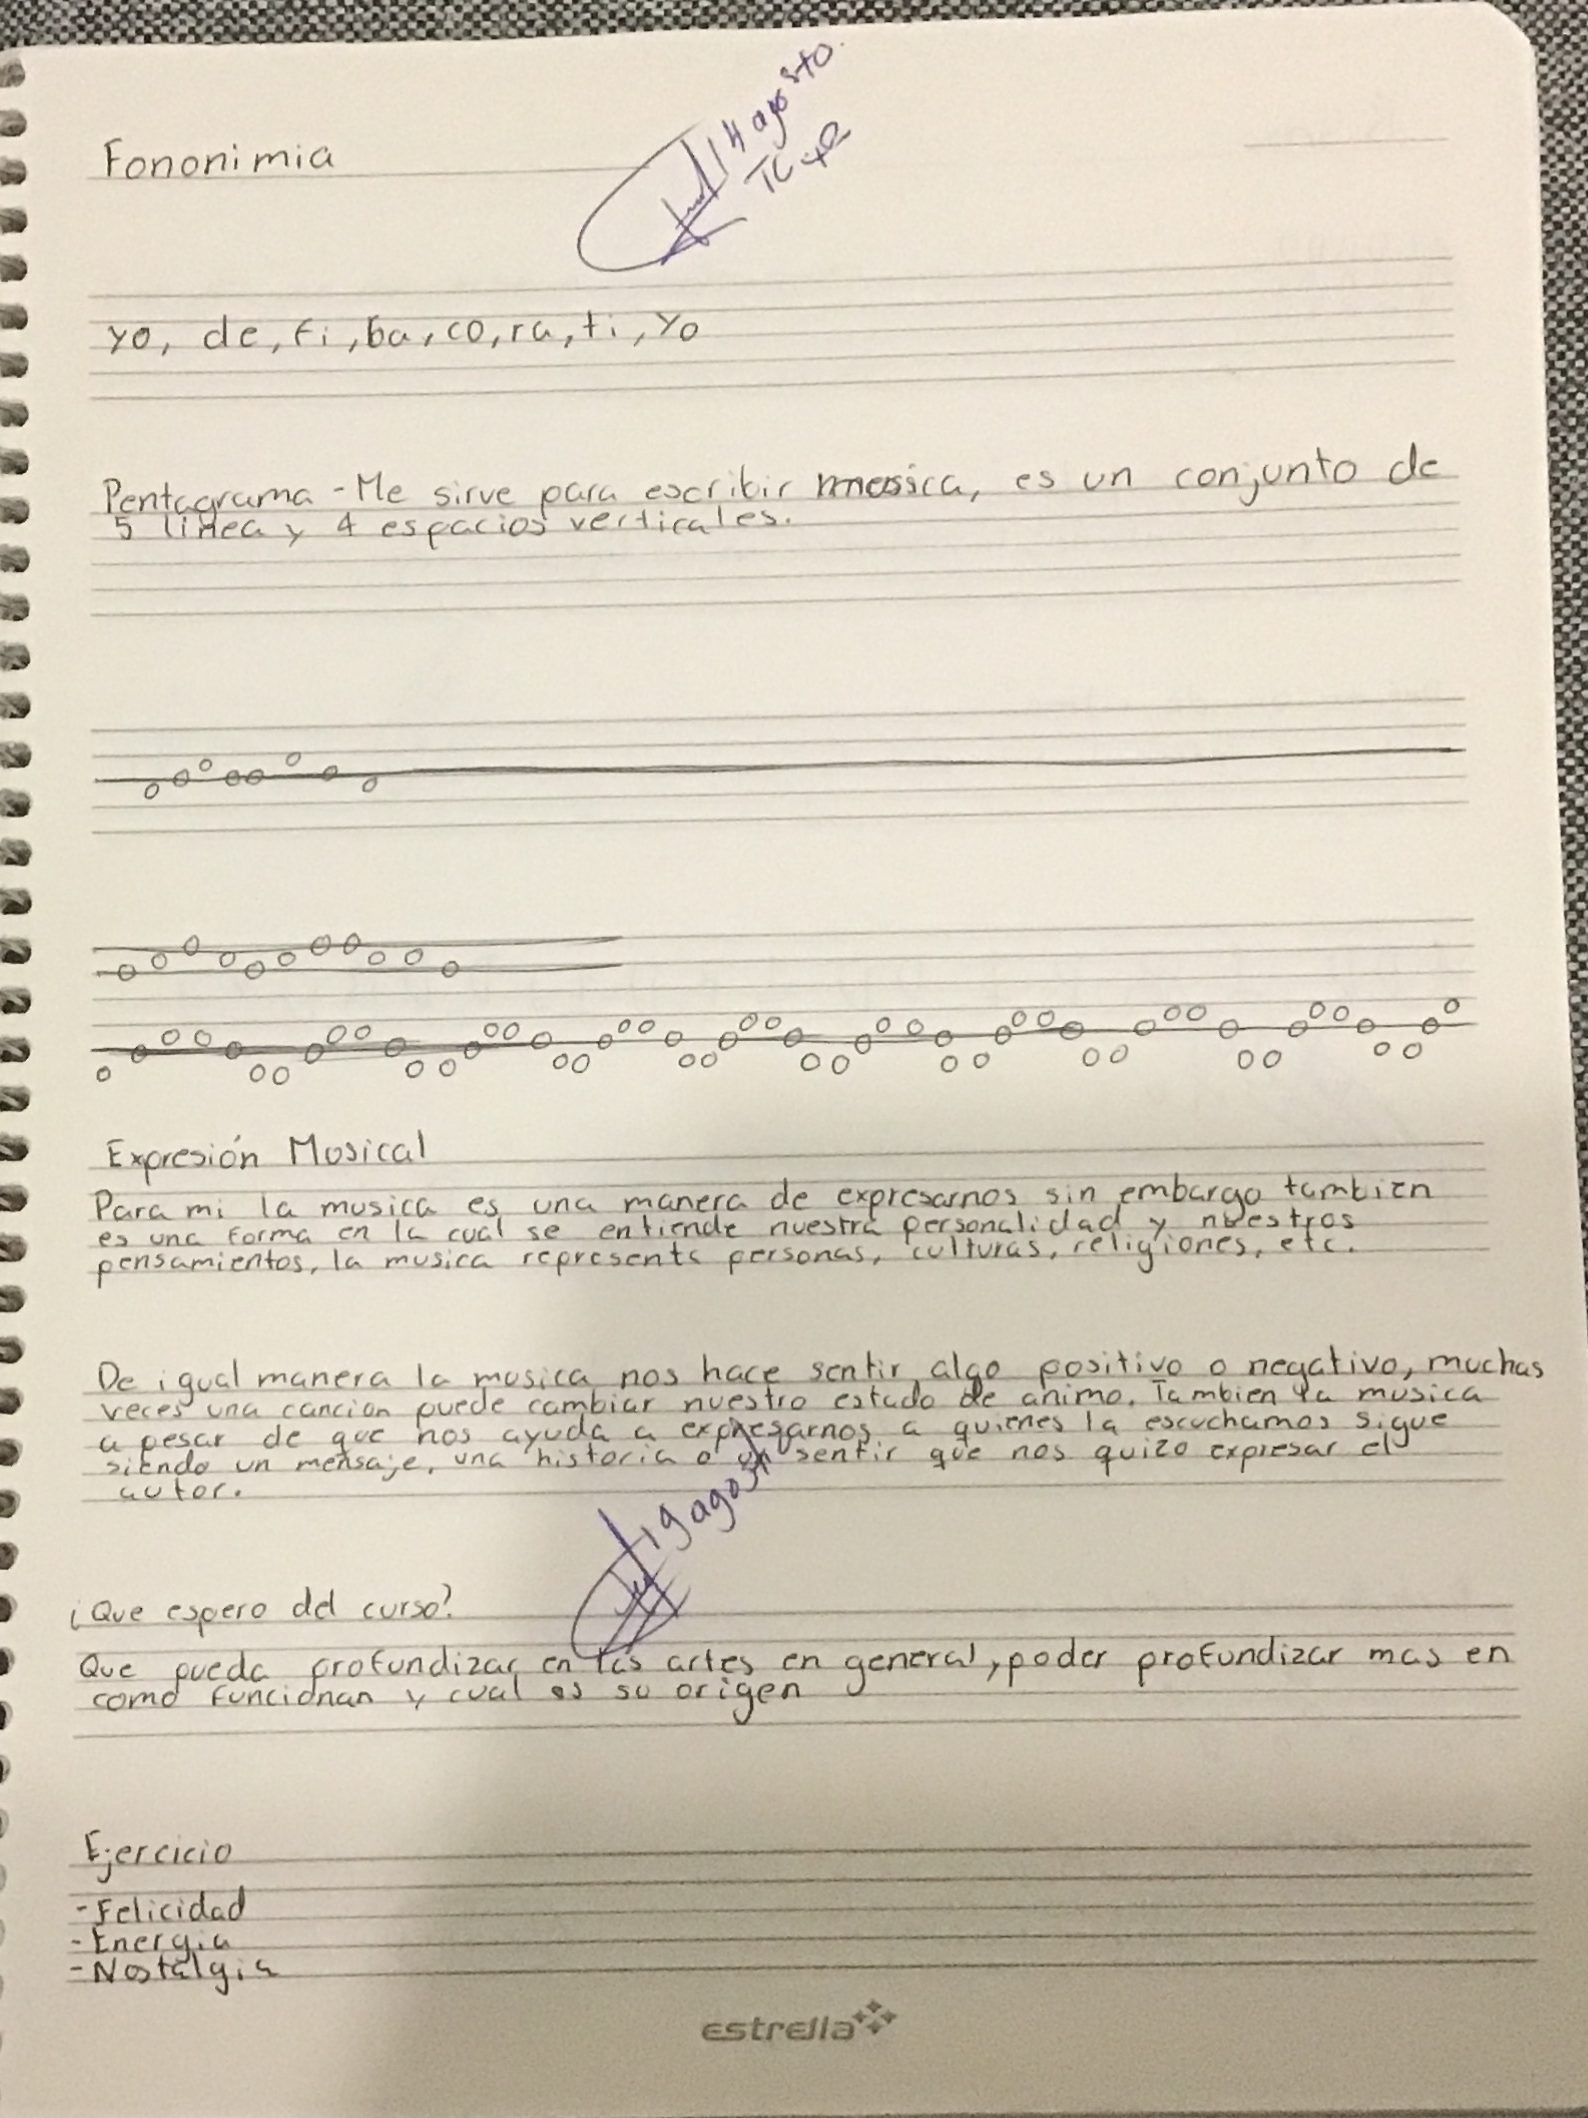 14 agosto
Fononimia
TC
yo, de, fi, ba, co, ra, ti, yo
Pentagrama - Me sirve para escribir musica, es un conjunto de
5 linea y 4 espacios verticales.
Expresión Musical
Para mi la musica es una manera de expresarnos sin embargo tambien
es una forma en la cual se entiende nuestra personalidad y nuestros
pensamientos, la musica representa personas, culturas, religiones, etc.
De igual manera la musica nos hace sentir algo positivo o negativo, muchas
veces una cancion puede cambiar nuestro estado de animo. Tambien la musica
a pesar de que nos ayuda a expresarnos a quienes la escuchamos sigue
siendo un mensaje, una historia o un sentir que nos quizo expresar el
autor.
19 agost
¿Que espero del curso?
Que pueda profundizar en las artes en general, poder profundizar mas en
como funcionan y cual es su origen
Ejercicio
- Felicidad
- Energia
- Nostalgia
estrella